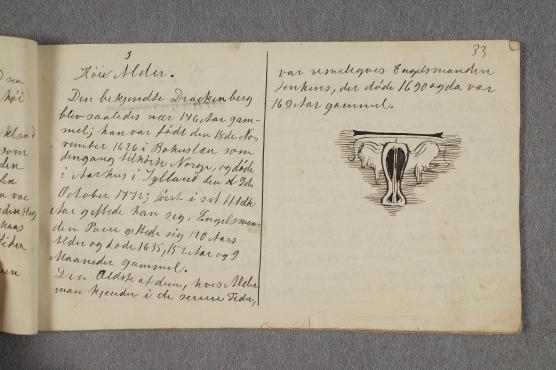 33
3
Høie Alder.
Den bekjendte Drackenberg
blev saaledes nær 146 Aar gam-
mel; han var født den 18de No-
vember 1626 i Bohuslän som
dengang tilhørte Norge, og døde
i Aarhus i Jylland den 9de
October 1772; først i sit 111de
Aar giftede han sig. Engelsman-
den Parre giftede sig 120 Aars
Alder og døde 1635, 152 Aar og 9
Maaneder gammel.
Den Ældste af dem, hvis Alder
man kjender i de senere Tider,
var Engelsmanden
Jenkins, der døde 1690 og da var
169 Aar gammel.